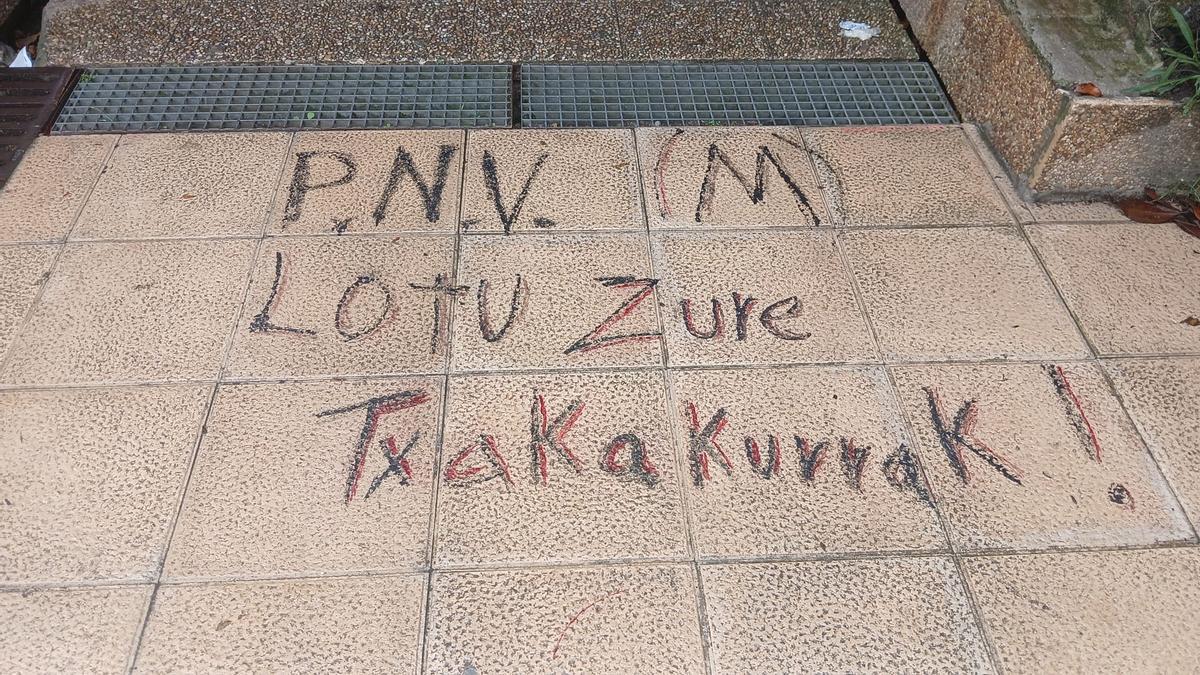 P.N.V. (M)
LOtU Zure
TxaKaKurraK!